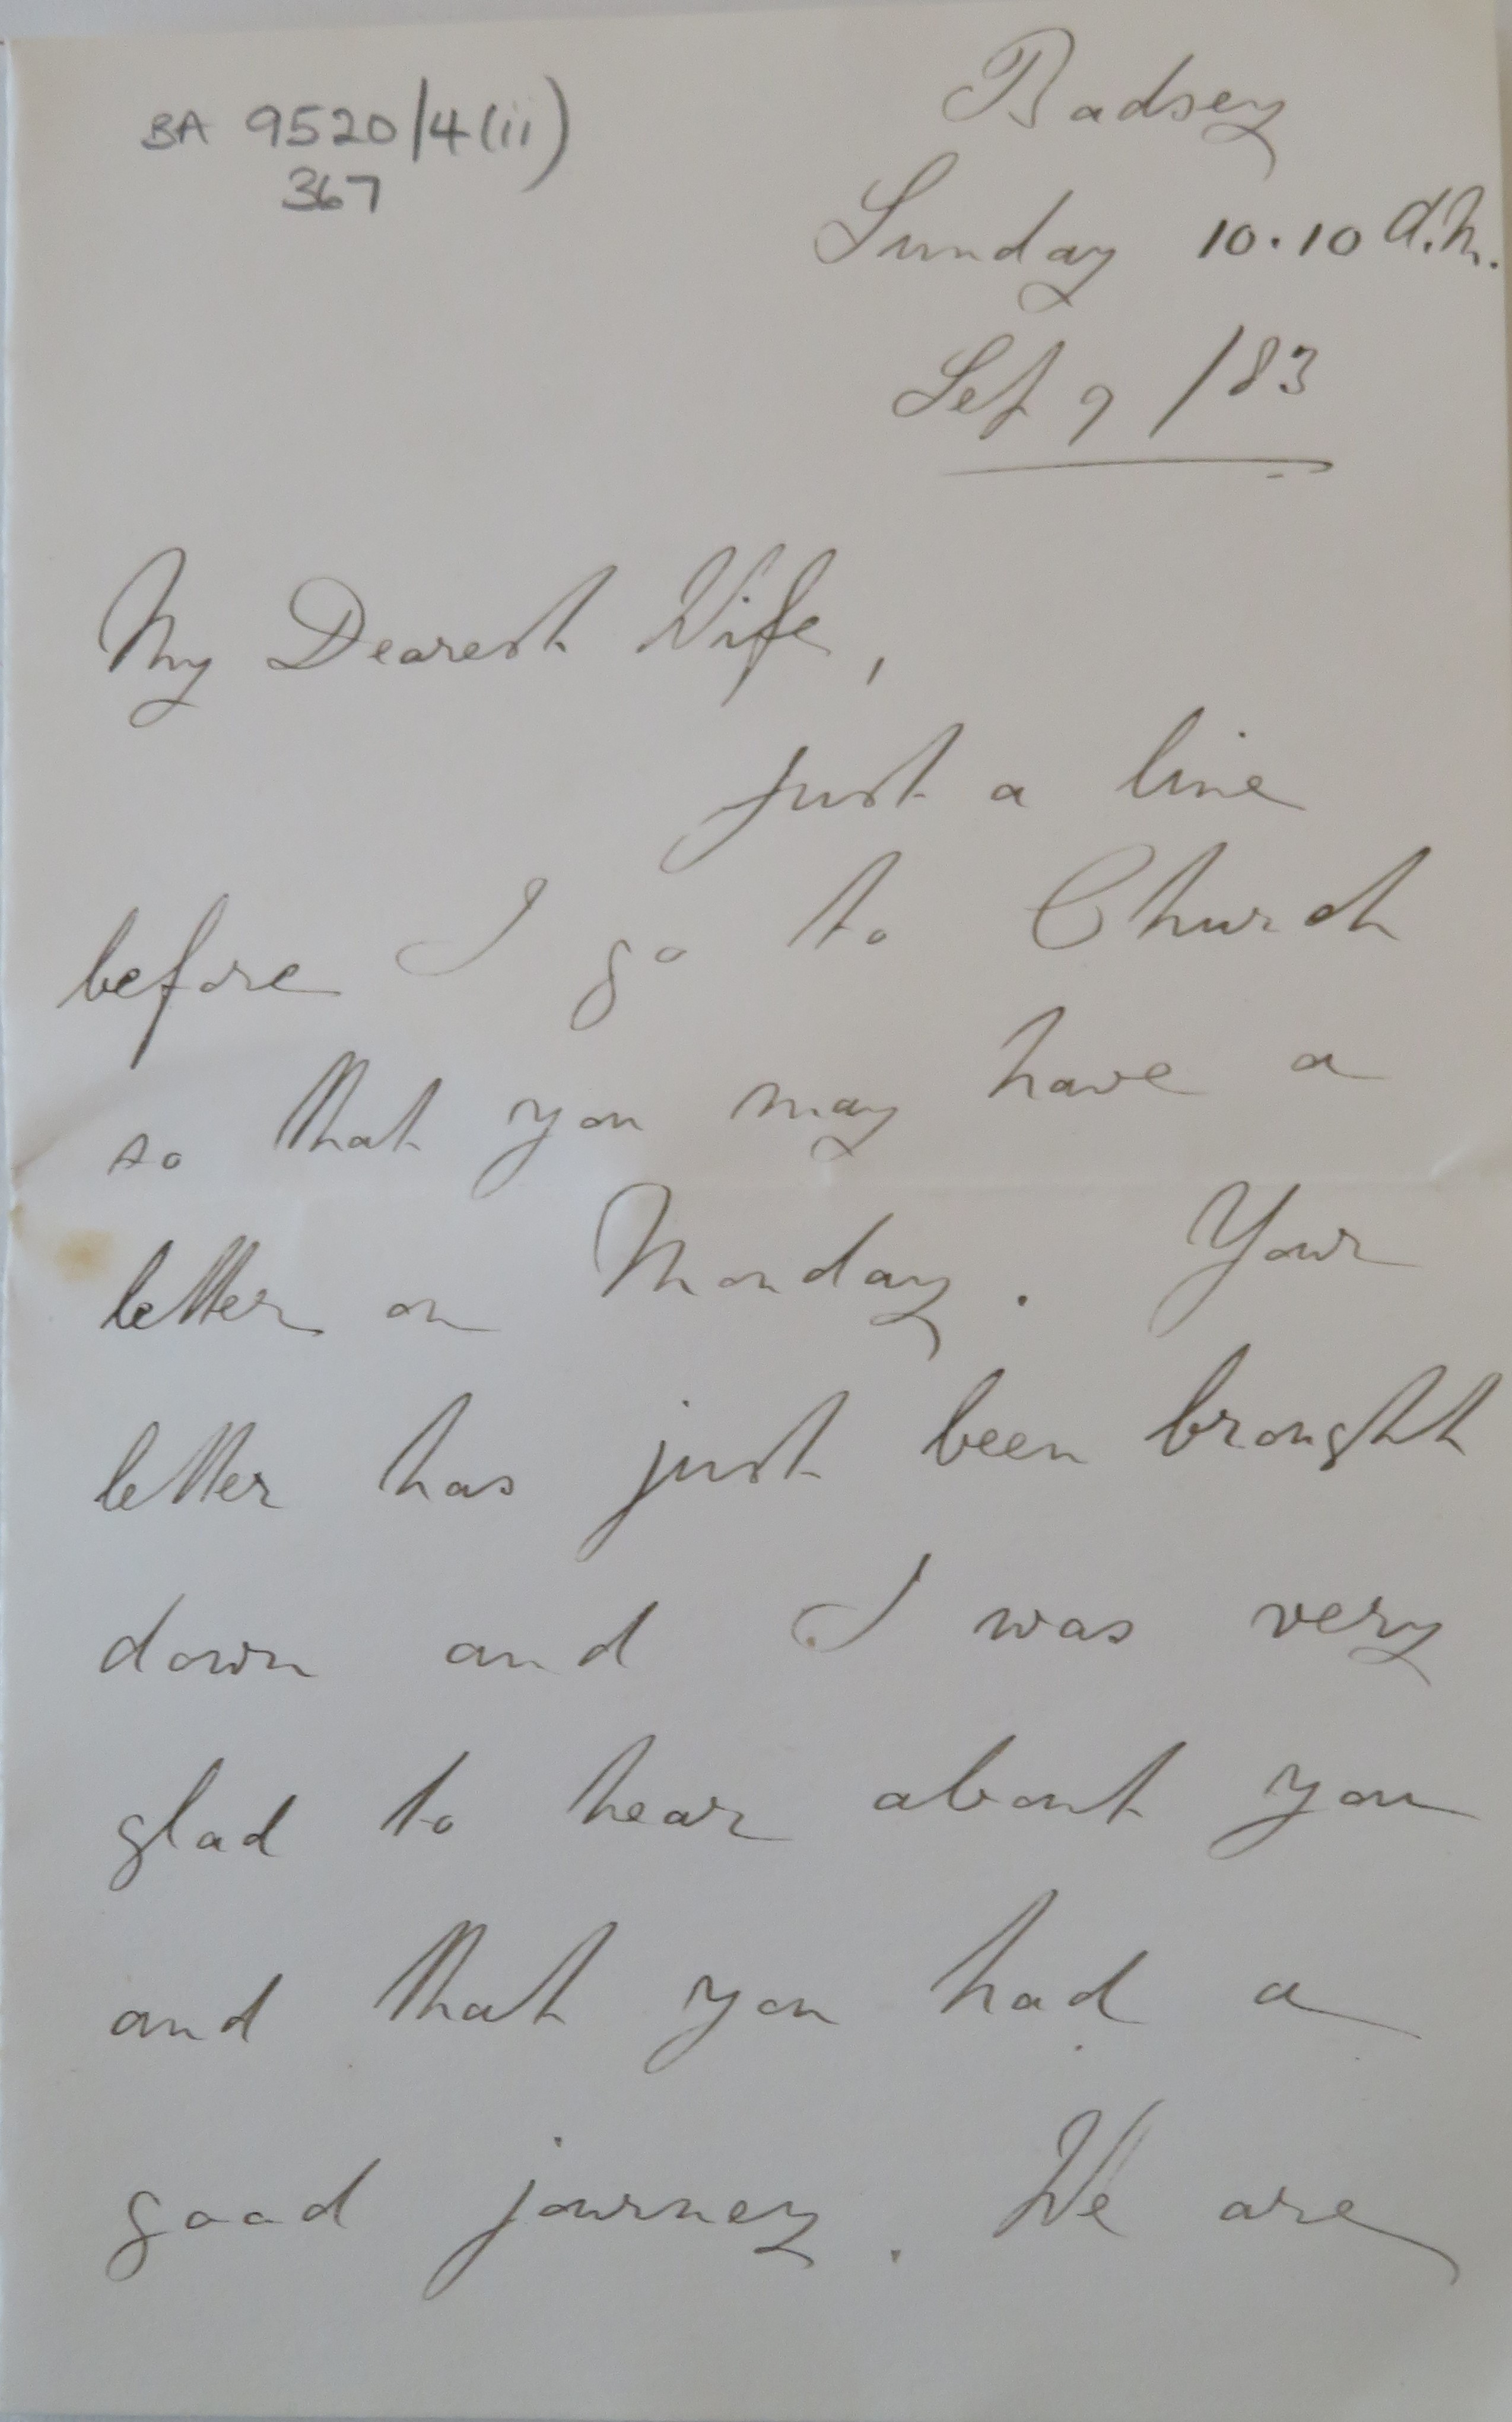 BA 9520/4(ii)
367
Badsey
Sunday 10.10 A.M.
Sep 9 /83
My Dearest Wife,
Just a line
before I go to Church
so that you may have a
letter on Monday. Your
letter has just been brought
down and I was very
glad to hear about you
and that you had a
good journey. We are